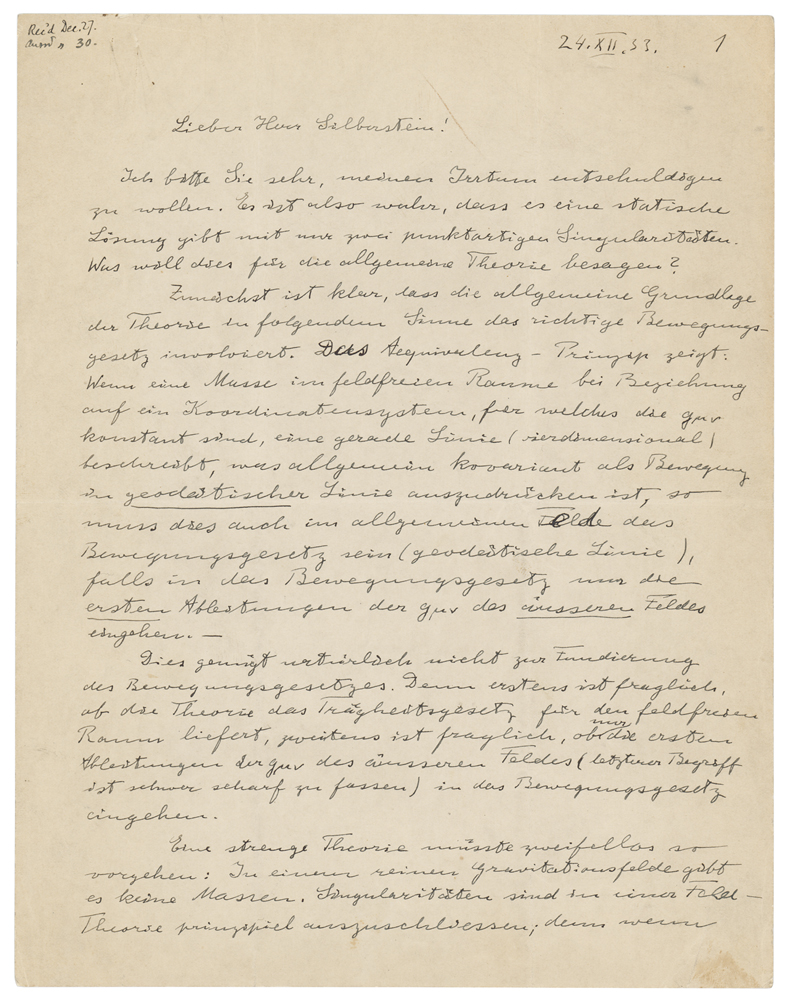 Rec'd Dec. 27.
" 30.
24.XII.33.
1
Lieber Herr Silberstein!
Ich bitte Sie sehr, meinen Irrtum entschuldigen
zu wollen. Es ist also wahr, dass es eine statische
Lösung gibt mit nur zwei punktartigen Singularitäten.
Was will dies für die allgemeine Theorie besagen?
Zunächst ist klar, dass die allgemeine Grundlage
der Theorie in folgendem Sinne das richtige Bewegungs-
gesetz involviert. Das Aequivalenz-Prinzip zeigt:
Wenn eine Masse im feldfreien Raume bei Beziehung
auf ein Koordinatensystem, für welches die gμν
konstant sind, eine gerade Linie (vierdimensional)
beschreibt, was allgemein kovariant als Bewegung
in geodätischer Linie auszudrücken ist, so
muss dies auch im allgemeinen Felde das
Bewegungsgesetz sein (geodätische Linie),
falls in das Bewegungsgesetz nur die
ersten Ableitungen der gμν des äusseren Feldes
eingehen. —
Dies genügt natürlich nicht zur Fundierung
des Bewegungsgesetzes. Denn erstens ist fraglich,
ob die Theorie das Trägheitsgesetz für den feldfreien
Raum liefert, zweitens ist fraglich, ob nur die ersten
Ableitungen der gμν des äusseren Feldes (letzterer Begriff
ist schwer scharf zu fassen) in das Bewegungsgesetz
eingehen.
Eine strenge Theorie müsste zweifellos so
vorgehen: In einem reinen Gravitationsfelde gibt
es keine Massen. Singularitäten sind in einer Feld-
Theorie prinzipiel auszuschliessen; denn wenn